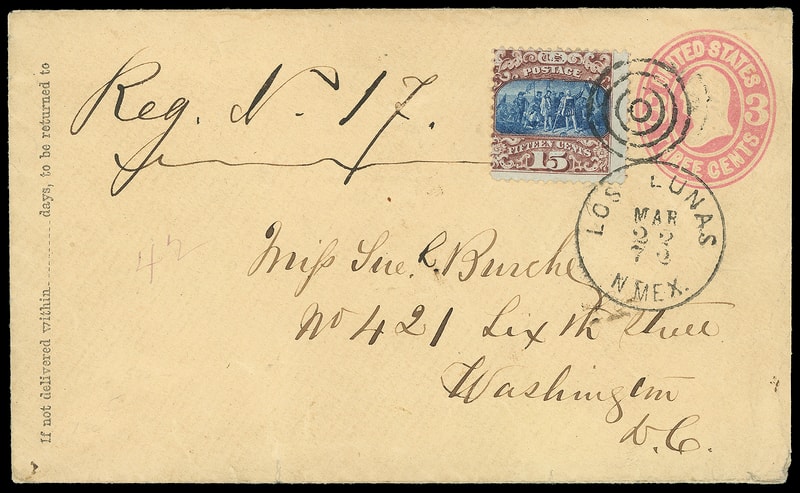 If not delivered within ........ days, to be returned to
Reg. No 17.
U.S.
POSTAGE
FIFTEEN CENTS
15
UNITED STATES
3
THREE CENTS
LOS LUNAS
MAR
N MEX.
42
Miss Sue. C. Burche
No 421 Sixth Street
Washington
D.C.